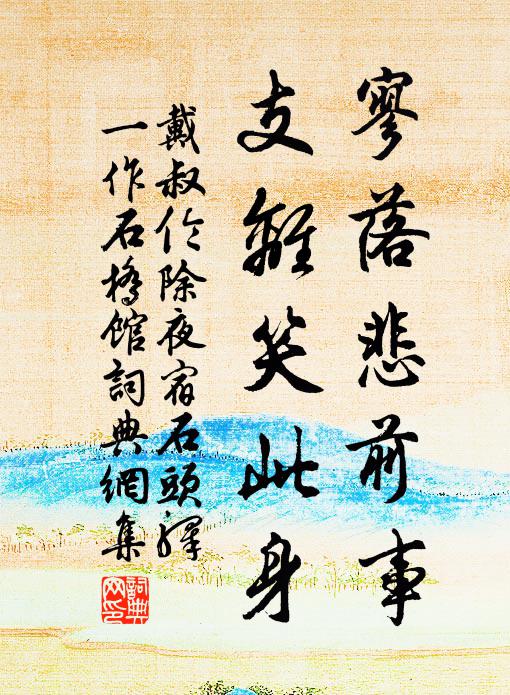 寥落悲前事
支離笑此身
戴叔倫除夜宿石頭驛
一作石橋館詞典網集
詞典網印